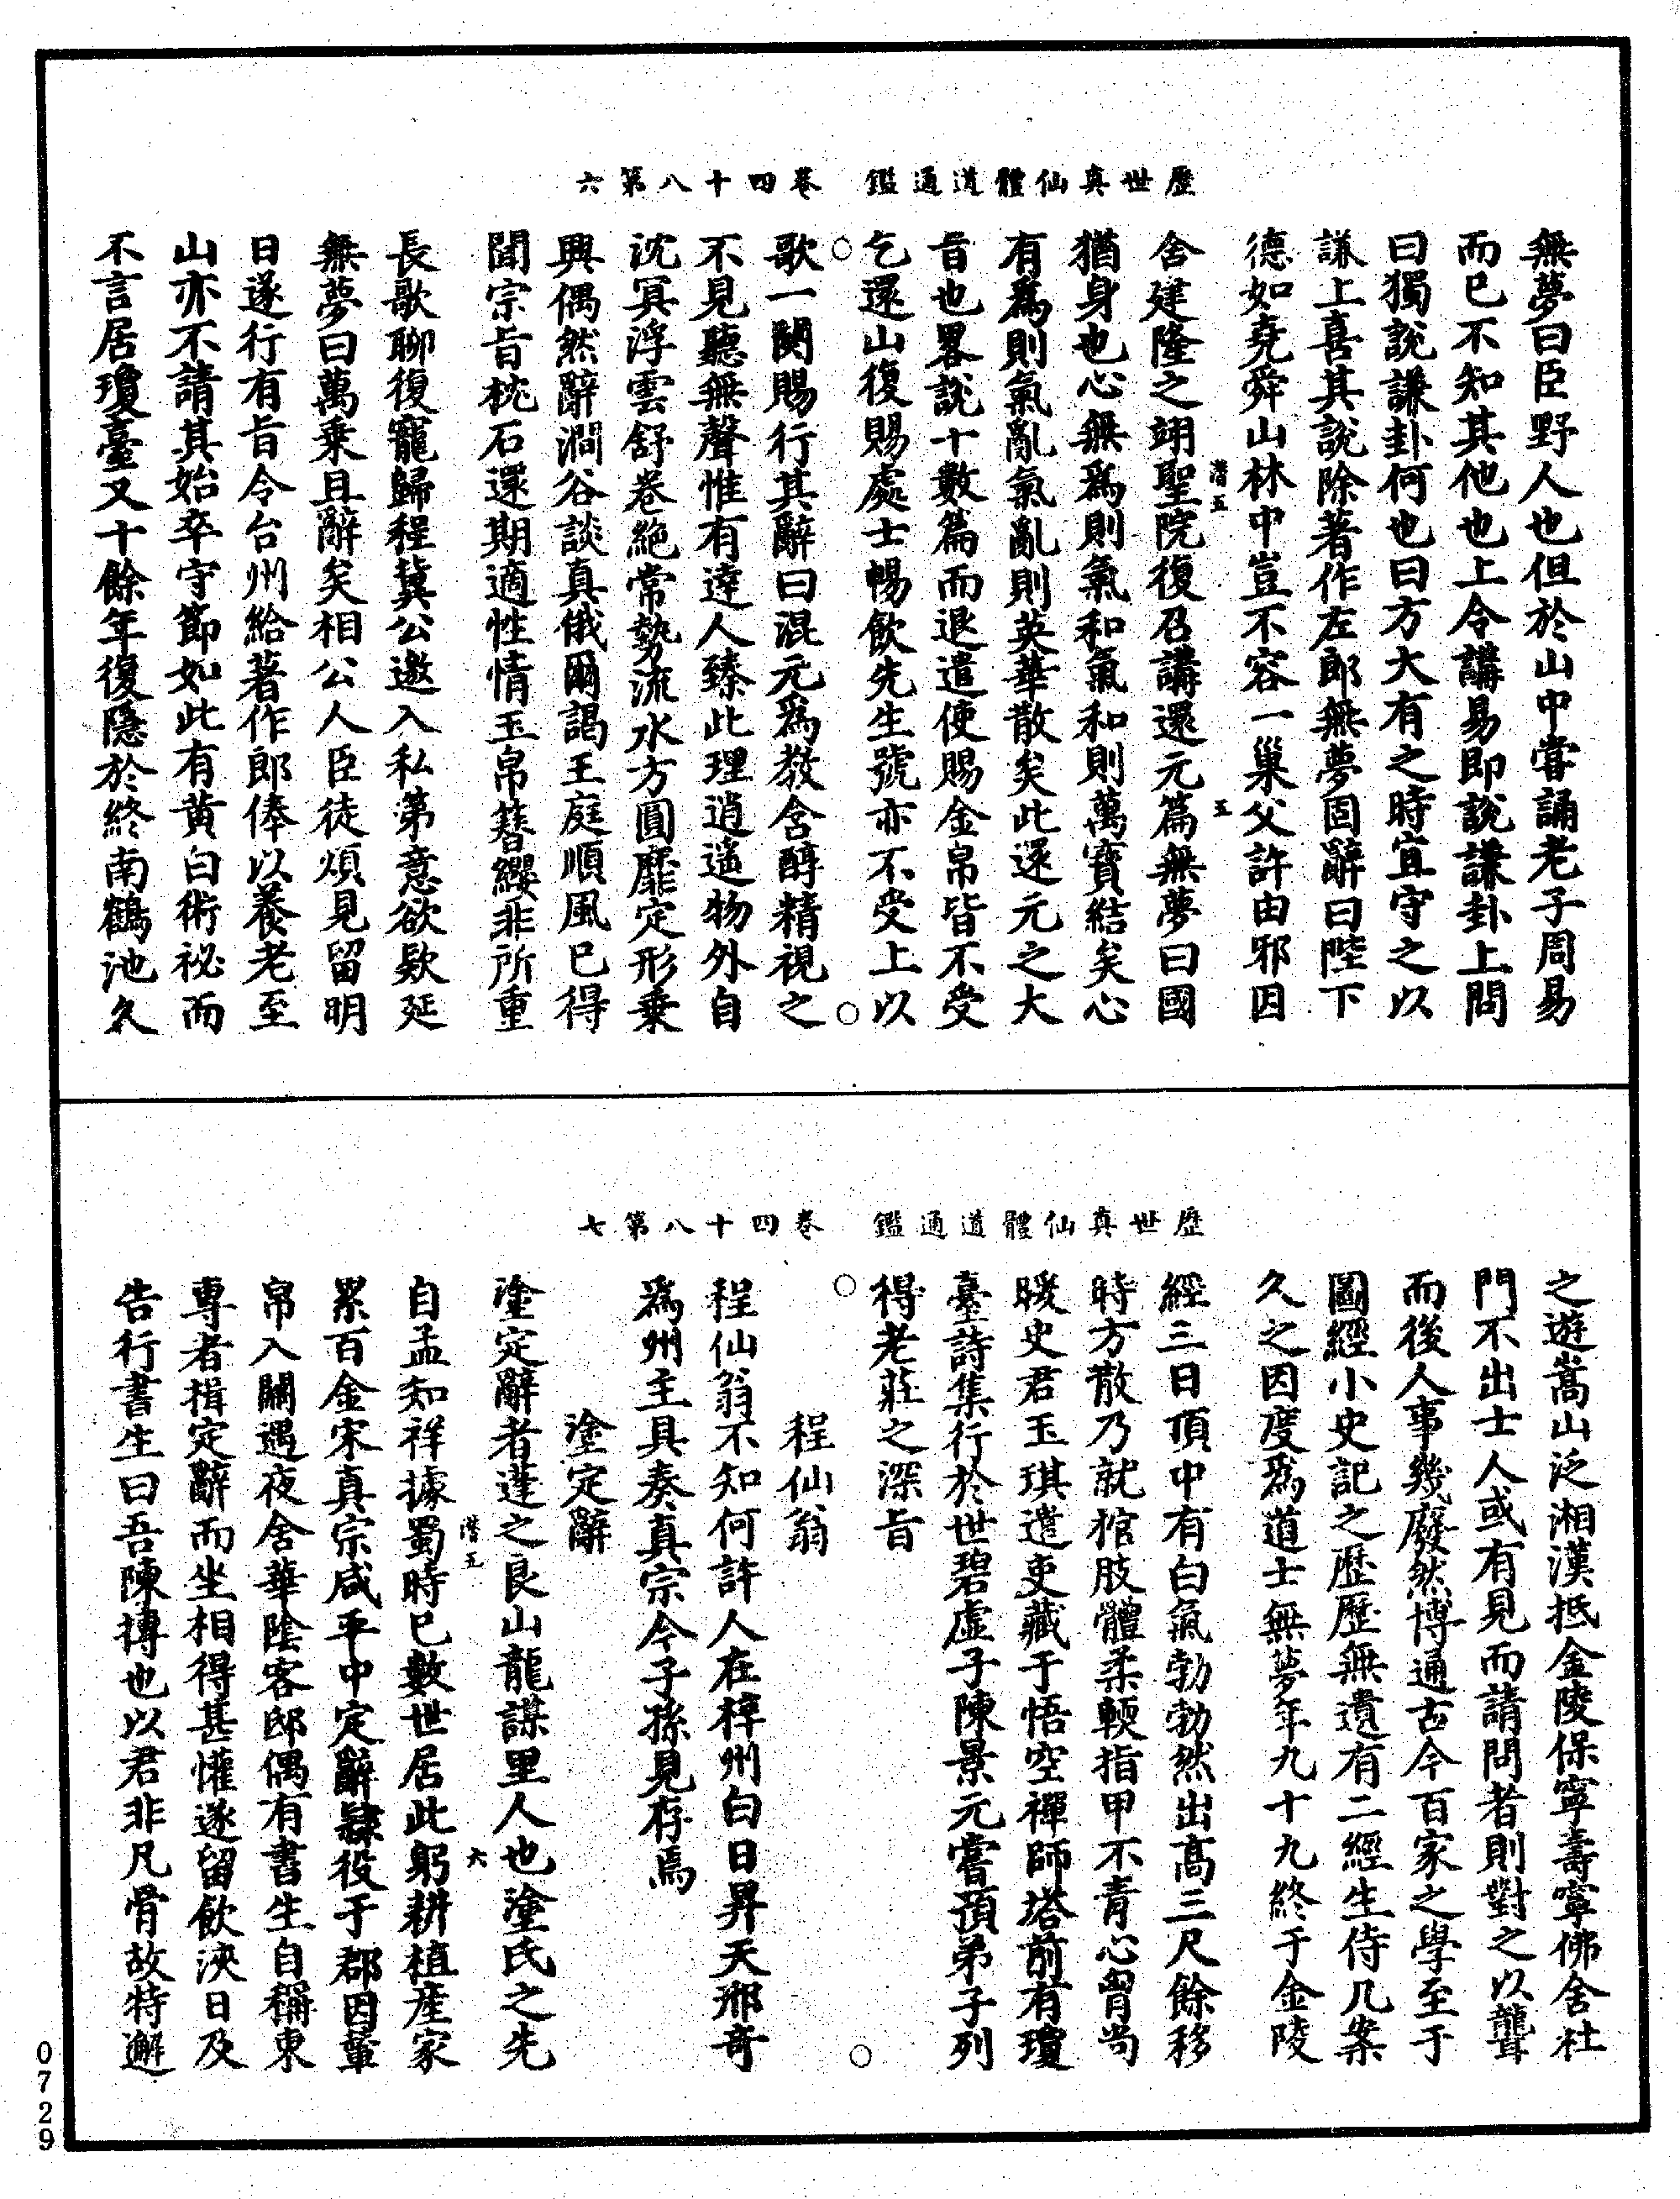 歷世真仙體道通鑑　卷四十八第六
無夢曰臣野人也但於山中甞誦老子周易
而已不知其他也上令講易即說謙卦上問
曰獨說謙卦何也曰方大有之時宜守之以
謙上喜其說除著作左郎無夢固辭曰陛下
德如堯舜山林中豈不容一巢父許由邪因
潛五　五
舍建隆之翊聖院復召講還元篇無夢曰國
猶身也心無爲則氣和氣和則萬寶結矣心
有爲則氣亂氣亂則英華散矣此還元之大
旨也畧說十數篇而退遣使賜金帛皆不受
乞還山復賜處士暢飲先生號亦不受上以
歌一闋賜行其辭曰混元爲教含醇精視之
不見聽無聲惟有達人臻此理逍遥物外自
沈冥浮雲舒卷絕常勢流水方圓靡定形乗
興偶然辭澗谷談真俄爾謁王庭順風已得
聞宗旨枕石還期適性情玉帛簪纓非所重
長歌聊復寵歸程冀公邀入私第意欲款延
無夢曰萬乗且辭矣相公人臣徒煩見留明
日遂行有旨令台州給著作郎俸以養老至
山亦不請其始卒守節如此有黄白術祕而
不言居瓊臺又十餘年復隱於終南鶴池久
歷世真仙體道通鑑　卷四十八第七
之遊嵩山泛湘漢抵金陵保寧壽寧佛舍社
門不出士人或有見而請問者則對之以聾
而後人事幾廢然博通古今百家之學至于
圖經小史記之歷歷無遺有二經生侍几案
久之因度爲道士無夢年九十九終于金陵
經三日頂中有白氣勃勃然出高三尺餘移
時方散乃就棺肢體柔輭指甲不青心胷尚
暖史君玉琪遣吏藏于悟空禪師塔前有瓊
臺詩集行於世碧虚子陳景元嘗預弟子列
得老莊之深旨
程仙翁
程仙翁不知何許人在梓州白日昇天郡奇
爲州主具奏真宗今子孫見存焉
塗定辭
塗定辭者蓬之良山龍謀里人也塗氏之先
潛五　六
自孟知祥據蜀時已數世居此躬耕植産家
累百金宋真宗咸平中定辭隷役于郡因輦
帛入關遇夜舍華陰客邸偶有書生自稱東
專者揖定辭而坐相得甚懽遂留飲浹日及
告行書生曰吾陳摶也以君非凡骨故特邂
0729